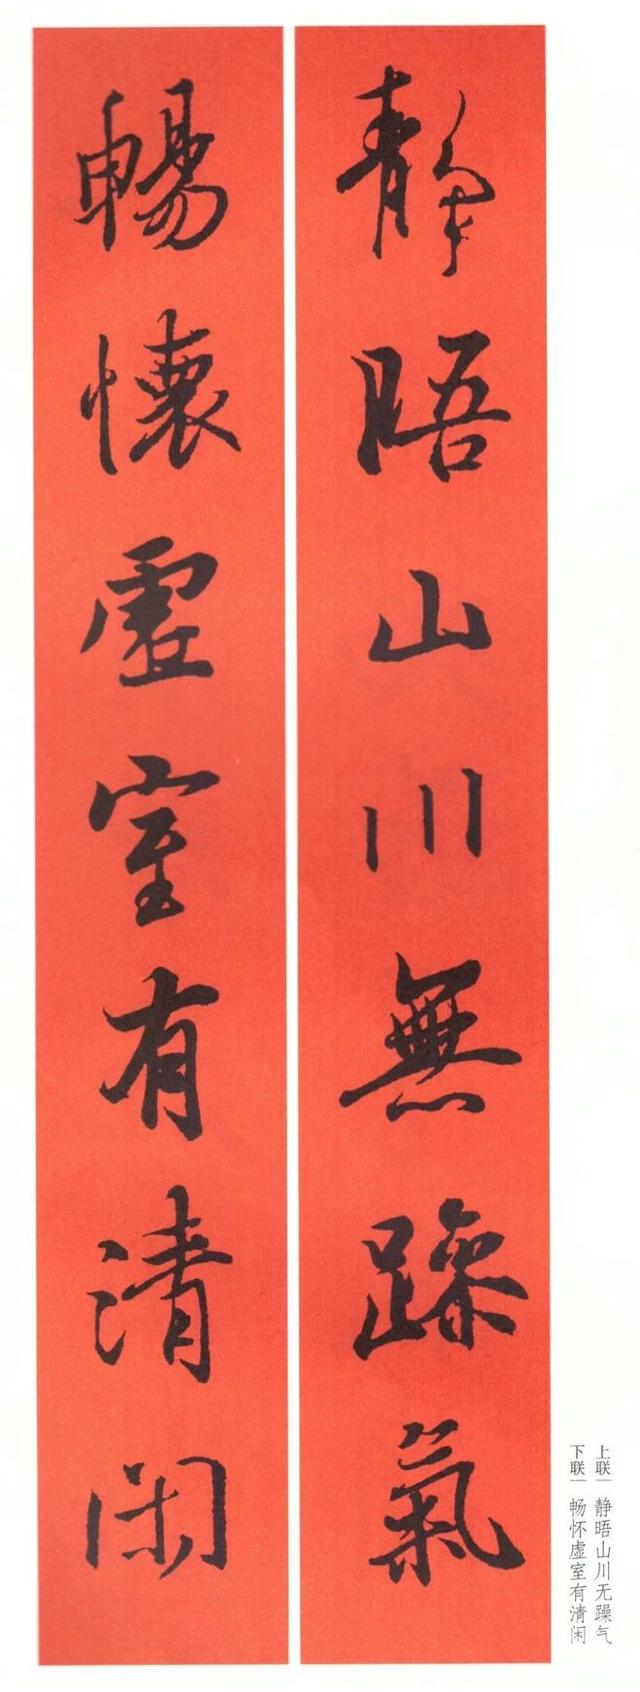 静晤山川無躁氣
暢懷虛室有清閑
上联｜静晤山川无躁气
下联｜畅怀虚室有清闲